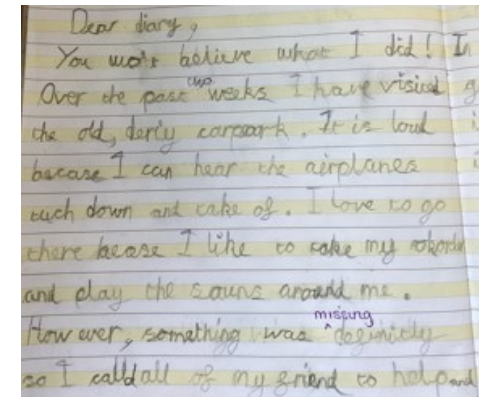 Dear diary,
You won't believe what I did! In
Over the past two weeks I have visited g
the old, derty carpark. It is loud i
becase I can hear the airplanes i
tuch down and take of. I love to go
there becase I like to take my rekorder
and play the souns around me.
However, something was missing definitly
so I calld all of my friend to help and